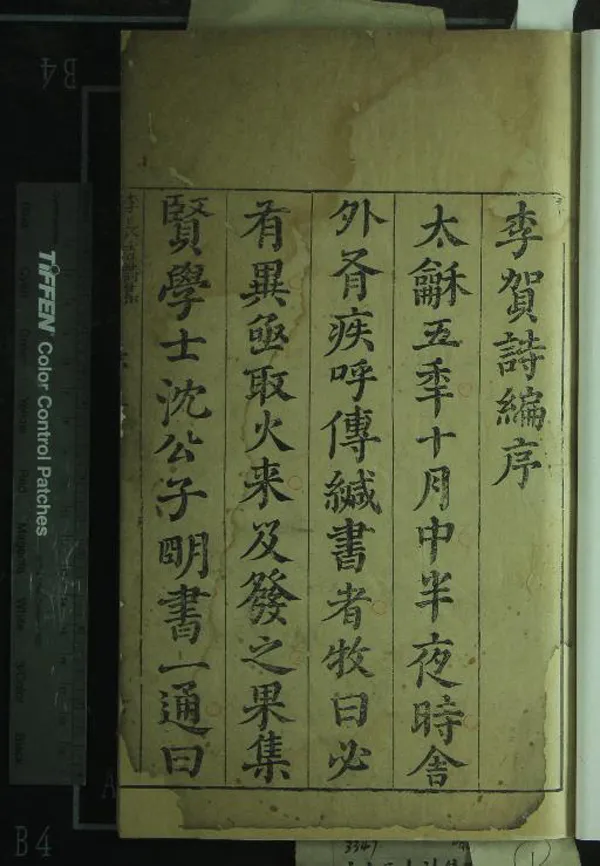 李賀詩編序
太龢五秊十月中半夜時舍
外有疾呼傳緘書者牧曰必
有異亟取火来及發之果集
賢學士沈公子明書一通曰
TIFFEN Color Control Patches
B4
B4
3347
1